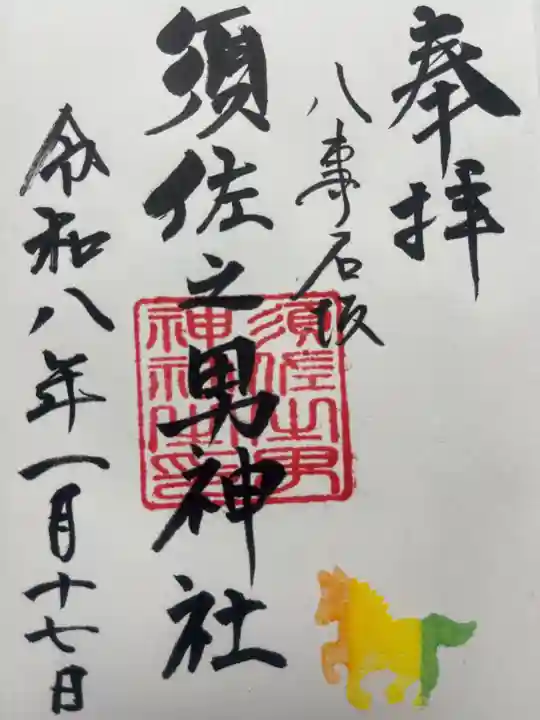 奉拝
八事石坂
須佐之男神社
須佐之男
神社
令和八年一月十七日